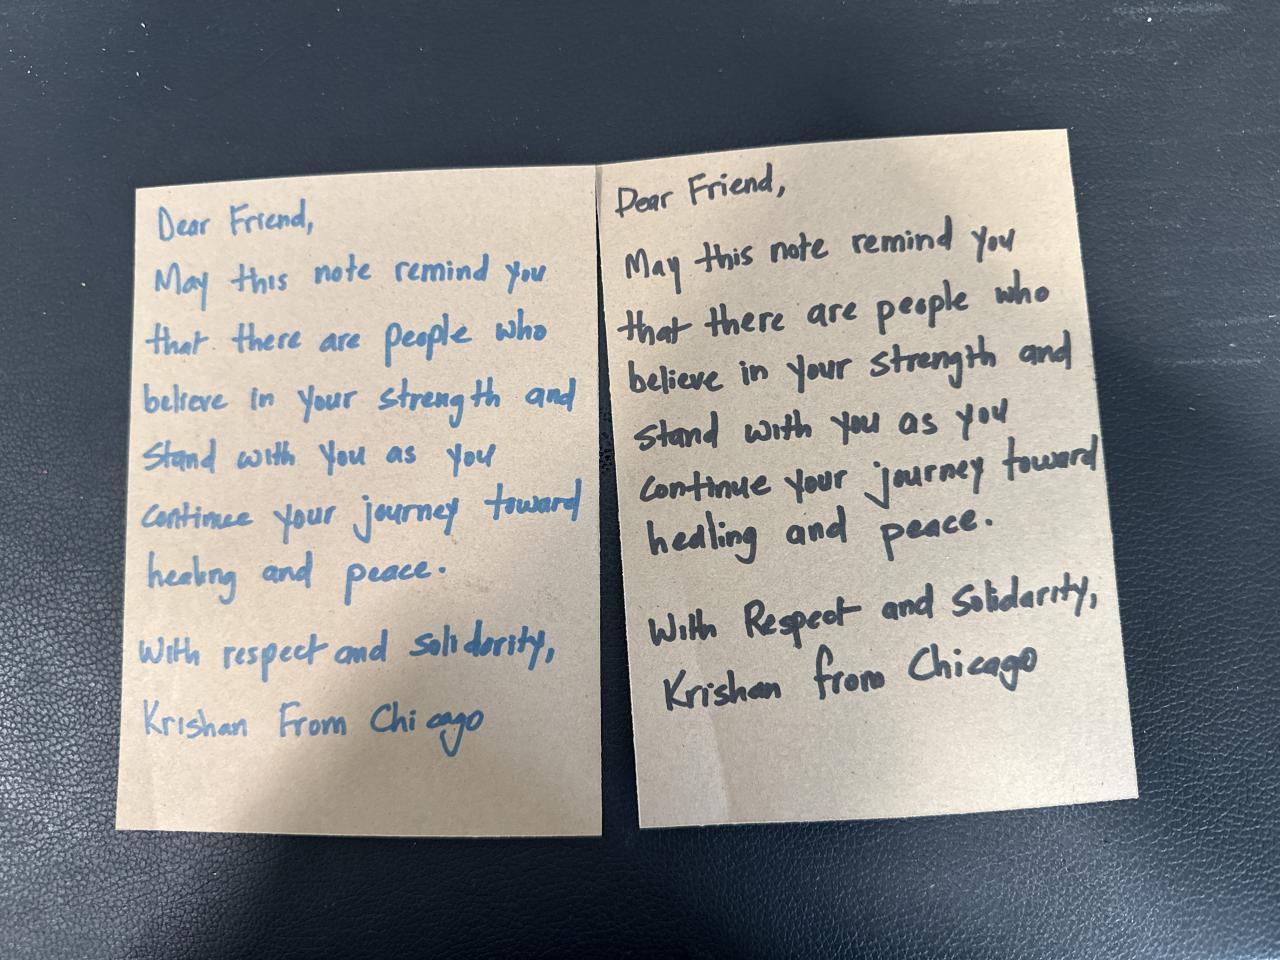 Dear Friend,
May this note remind you
that there are people who
believe in your strength and
stand with you as you
continue your journey toward
healing and peace.
With respect and solidarity,
Krishan From Chicago
Dear Friend,
May this note remind you
that there are people who
believe in your strength and
stand with you as you
continue your journey toward
healing and peace.
With Respect and solidarity,
Krishan from Chicago